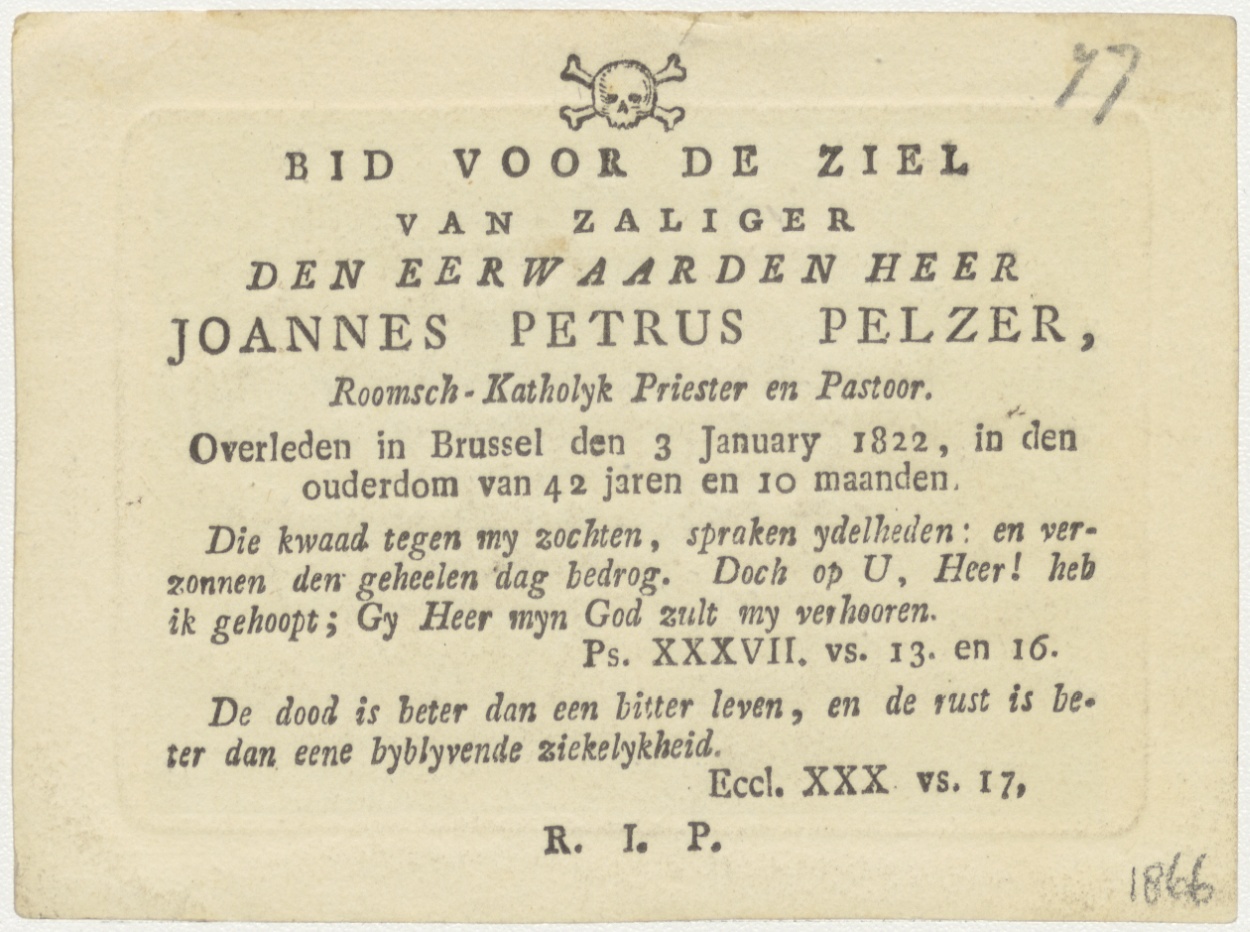 77
BID VOOR DE ZIEL
VAN ZALIGER
DEN EERWAARDEN HEER
JOANNES PETRUS PELZER,
Roomsch-Katholyk Priester en Pastoor.
Overleden in Brussel den 3 January 1822, in den
ouderdom van 42 jaren en 10 maanden.
Die kwaad tegen my zochten, spraken ydelheden: en ver-
zonnen den geheelen dag bedrog. Doch op U, Heer! heb
ik gehoopt; Gy Heer myn God zult my verhooren.
Ps. XXXVII. vs. 13. en 16.
De dood is beter dan een bitter leven, en de rust is be-
ter dan eene byblyvende ziekelykheid.
Eccl. XXX vs. 17,
R. I. P.
1866